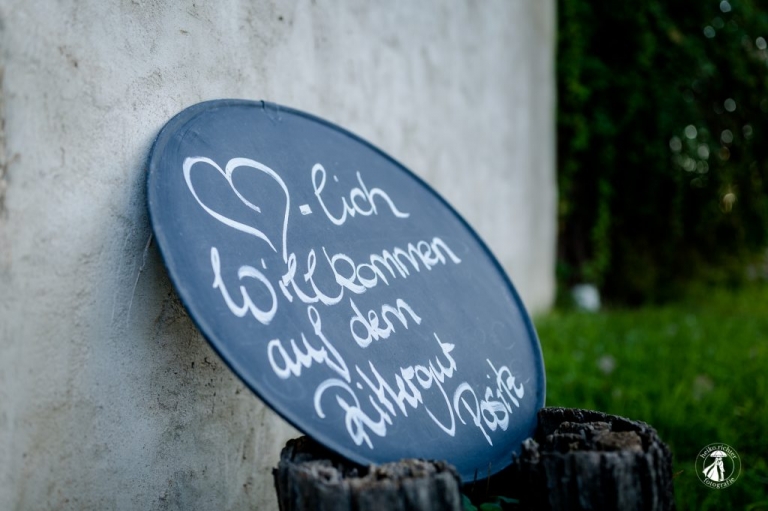 ♡-lich
Willkommen
auf dem
Rittergut
Positz
heiko richter
fotografie